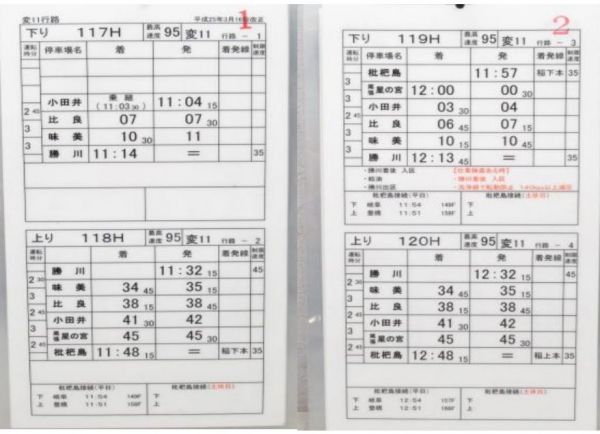 変11行路 平成25年3月16日改正 1
下り 117H 最高速度 95 変11 行路 - 1
運転時分 停車場名 着 発 着発線 制限速度
小田井 乗継 (11:03 30) 11:04 15
2 45
比良 07 07 30
3
味美 10 30 11
3
勝川 11:14 = 35
上り 118H 最高速度 95 変11 行路 - 2
運転時分 着 発 着発線 制限速度
勝川 11:32 15 45
2 30
味美 34 45 35 15
3
比良 38 15 38 45
2 45
小田井 41 30 42
3
尾張星の宮 45 45 30
2 45
枇杷島 11:48 15 = 稲下本 35
枇杷島接続(平日) 枇杷島接続(土休日)
下 岐阜 11:54 149F 下
上 豊橋 11:51 158F 上
2
下り 119H 最高速度 95 変11 行路 - 3
運転時分 停車場名 着 発 着発線 制限速度
枇杷島 11:57 稲下本 35
3
尾張星の宮 12:00 00 30
3
小田井 03 30 04
2 45
比良 06 45 07 15
3
味美 10 15 10 45
3
勝川 12:13 45 = 35
・勝川着後 入区
・給油 ・勝川着後 入区
・勝川出区
枇杷島接続(平日) 枇杷島接続(土休日)
下 岐阜 11:54 149F 下
上 豊橋 11:51 158F 上
上り 120H 最高速度 95 変11 行路 - 4
運転時分 着 発 着発線 制限速度
勝川 12:32 15 45
2 30
味美 34 45 35 15
3
比良 38 15 38 45
2 45
小田井 41 30 42
3
尾張星の宮 45 45 30
2 45
枇杷島 12:48 15 = 稲上本 35
枇杷島接続(平日) 枇杷島接続(土休日)
下 岐阜 12:54 157F 下
上 豊橋 12:51 166F 上